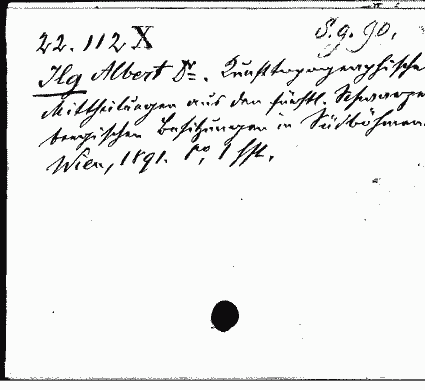 22.112 X S.g.90.
Ilg Albert Dr. Kunsttopographische
Mittheilungen aus den fürstl. Schwarze
bergischen Besitzungen in Südböhmen.
Wien, 1891. 8o, 1 Hft.